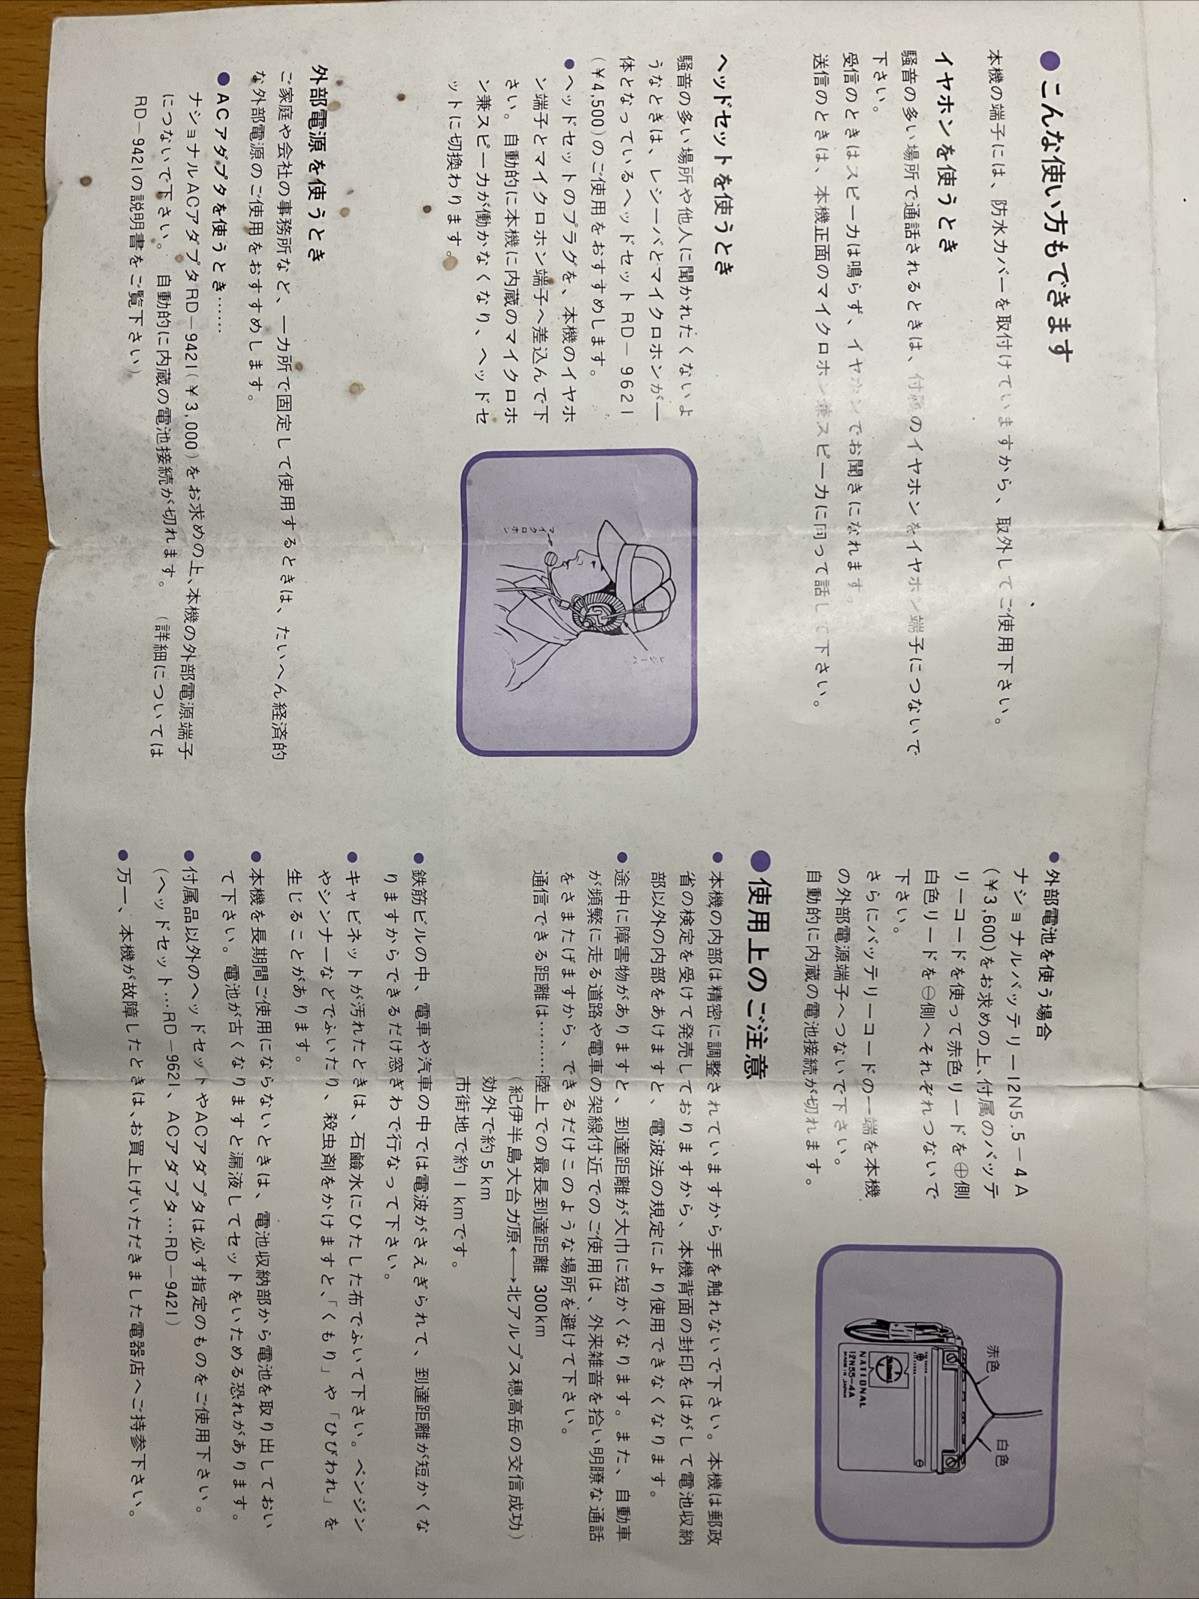 ●こんな使い方もできます
本機の端子には、防水カバーを取付けていますから、取外してご使用下さい。
イヤホンを使うとき
騒音の多い場所で通話されるときは、付属のイヤホンをイヤホン端子につないで
下さい。
受信のときはスピーカは鳴らず、イヤホンでお聞きになれます。
送信のときは、本機正面のマイクロホン兼スピーカに向って話して下さい。
ヘッドセットを使うとき
騒音の多い場所や他人に聞かれたくないよ
うなときは、レシーバとマイクロホンが一
体となっているヘッドセットRD−9621
(¥4,500)のご使用をおすすめします。
●ヘッドセットのプラグを、本機のイヤホ
ン端子とマイクロホン端子へ差込んで下
さい。自動的に本機に内蔵のマイクロホ
ン兼スピーカが働かなくなり、ヘッドセ
ットに切換わります。
マイクロホン
レシーバ
外部電源を使うとき
ご家庭や会社の事務所など、一カ所で固定して使用するときは、たいへん経済的
な外部電源のご使用をおすすめします。
●ACアダプタを使うとき……
ナショナルACアダプタRD−9421(¥3,000)をお求めの上、本機の外部電源端子
につないで下さい。自動的に内蔵の電池接続が切れます。(詳細については
RD−9421の説明書をご覧下さい)
●外部電池を使う場合
ナショナルバッテリー12N5.5−4A
(¥3,600)をお求めの上、付属のバッテ
リーコードを使って赤色リードを⊕側
白色リードを⊖側へそれぞれつないで
下さい。
さらにバッテリーコードの一端を本機
の外部電源端子へつないで下さい。
自動的に内蔵の電池接続が切れます。
赤色
白色
NATIONAL
12N55-4A
MADE IN JAPAN
●使用上のご注意
●本機の内部は精密に調整されていますから手を触れないで下さい。本機は郵政
省の検定を受けて発売しておりますから、本機背面の封印をはがして電池収納
部以外の内部をあけますと、電波法の規定により使用できなくなります。
●途中に障害物がありますと、到達距離が大巾に短かくなります。また、自動車
が頻繁に走る道路や電車の架線付近でのご使用は、外来雑音を拾い明瞭な通話
をさまたげますから、できるだけこのような場所を避けて下さい。
通信できる距離は………陸上での最長到達距離 300km
(紀伊半島大台ガ原⟷北アルプス穂高岳の交信成功)
効外で約5km
市街地で約1kmです。
●鉄筋ビルの中、電車や汽車の中では電波がさえぎられて、到達距離が短かくな
りますからできるだけ窓ぎわで行なって下さい。
●キャビネットが汚れたときは、石鹸水にひたした布でふいて下さい。ベンジン
やシンナーなどでふいたり、殺虫剤をかけますと、「くもり」や「ひびわれ」を
生じることがあります。
●本機を長期間ご使用にならないときは、電池収納部から電池を取り出しておい
て下さい。電池が古くなりますと漏液してセットをいためる恐れがあります。
●付属品以外のヘッドセットやACアダプタは必ず指定のものをご使用下さい。
(ヘッドセット…RD−9621、ACアダプタ…RD−9421)
●万一、本機が故障したときは、お買上げいただきました電器店へご持参下さい。